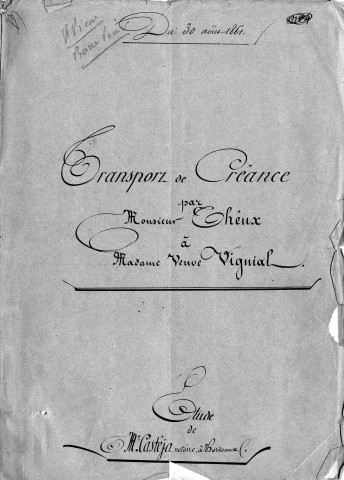 Du 30 août 1861.
Transport de Créance
par
Monsieur Thêux
à
Madame Veuve Vignial.
Etude
de
Me Castéja notaire, à Bordeaux.